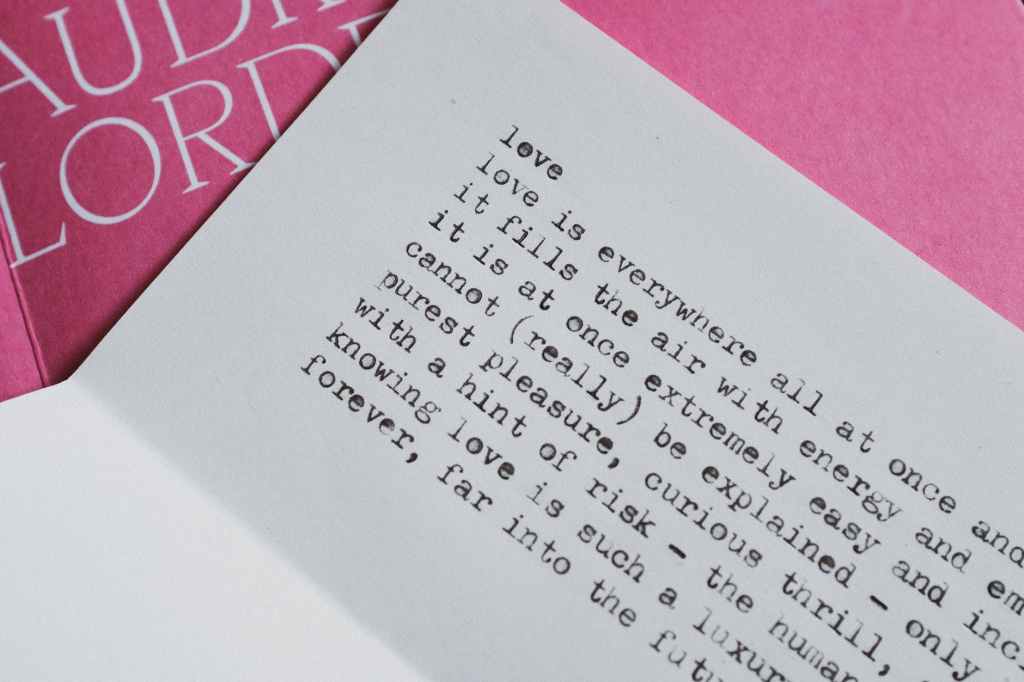 AUDR
LORD
love
love is everywhere all at once and
it fills the air with energy and em
it is at once extremely easy and incr
cannot (really) be explained - only
purest pleasure, curious thrill,
with a hint of risk - the human
knowing love is such a luxur
forever, far into the futu